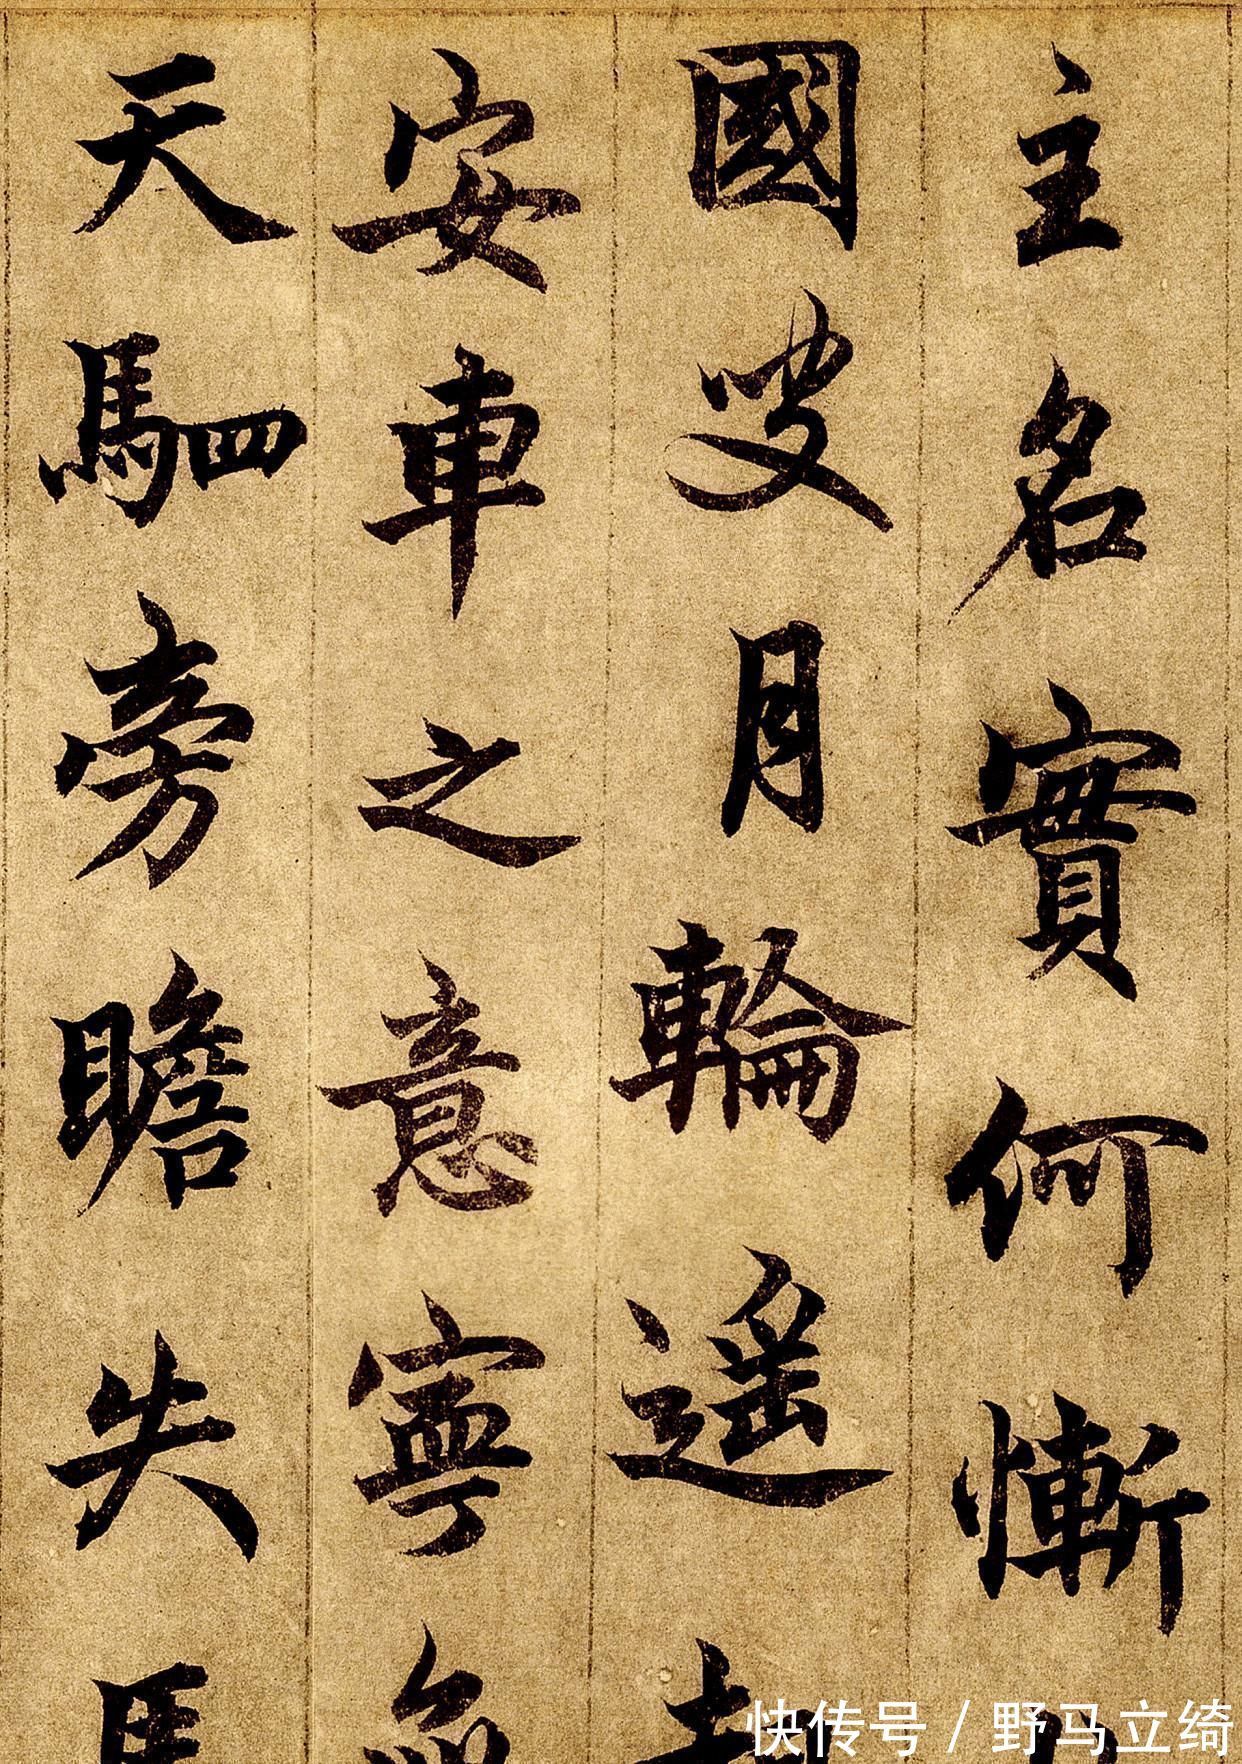 主名實何慚
國叟月輪遥
安車之意寧
天駟旁瞻失
快传号 / 野马立绮